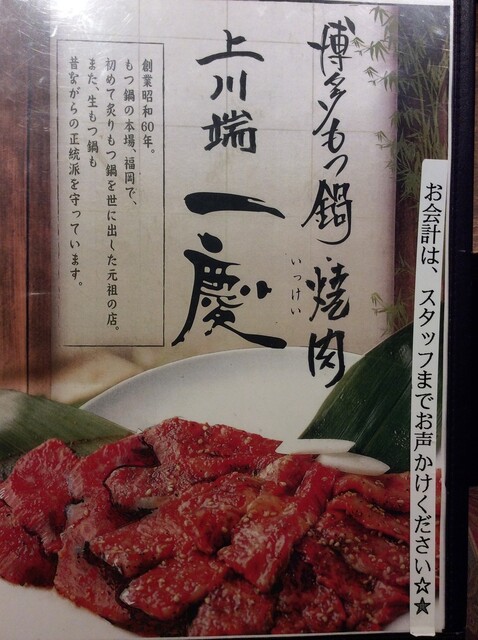 博多もつ鍋・焼肉
いっけい
上川端 一慶
創業昭和60年。
もつ鍋の本場、福岡で、
初めて炙りもつ鍋を世に出した元祖の店。
また、生もつ鍋も
昔ながらの正統派を守っています。
お会計は、スタッフまでお声かけください☆★